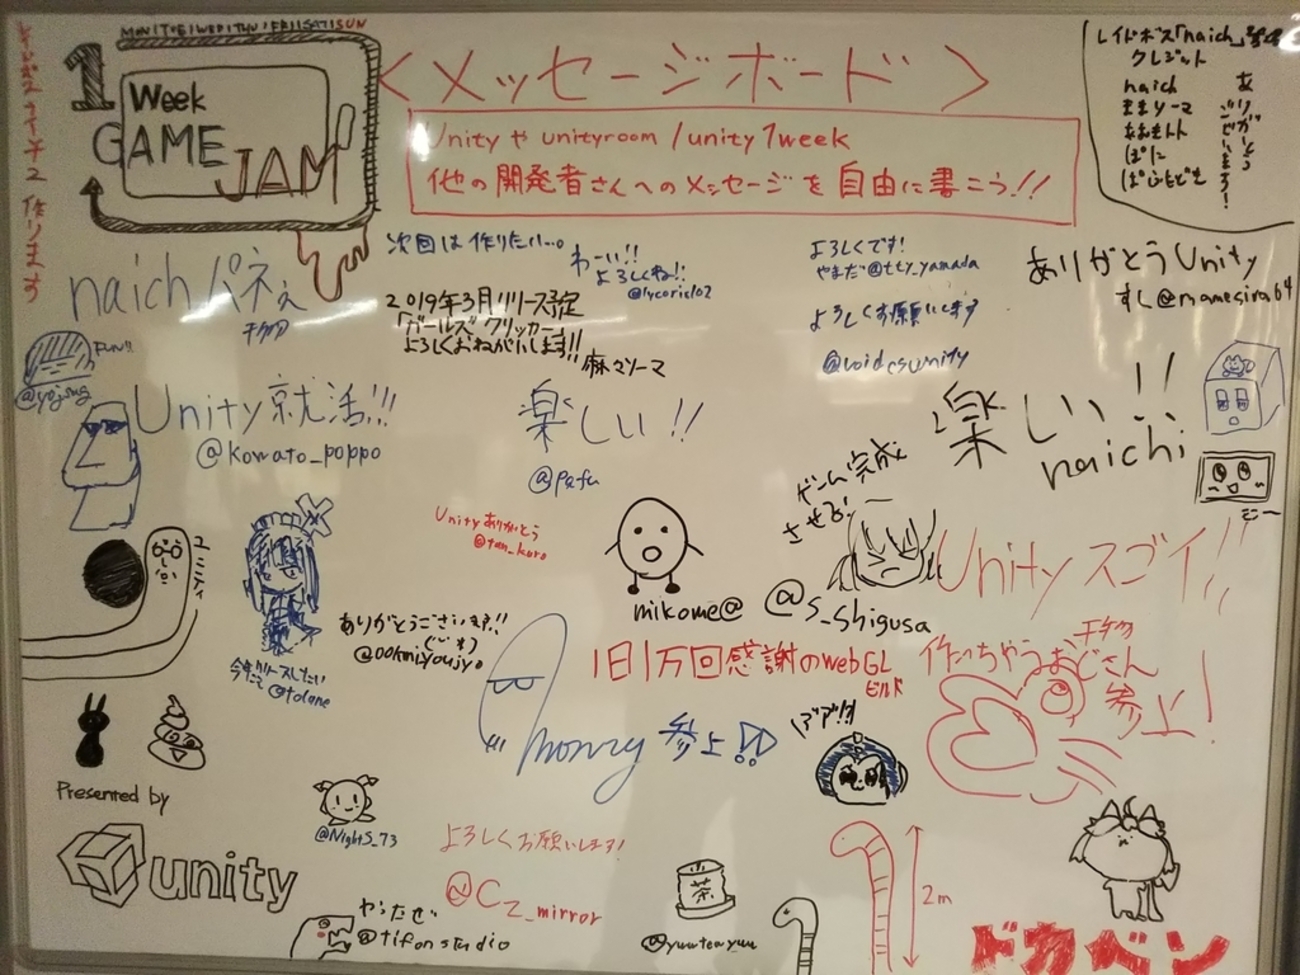 MON/TUE/WED/THU/FRI/SAT/SUN
1 Week
GAME
JAM
<メッセージボード>
Unity や unityroom /unity1week
他の開発者さんへのメッセージを自由に書こう!!
レイドボス「naich」
クレジット
naich
ままソーマ
ありがとう
ございまーす!
作ります
naichパネぇ
次回は作りたい…。
わーい!!
よろしくね!!
@lycoric102
2019年3月リリース予定
「ガールズクリッカー」
よろしくおねがいします!!
麻々ソーマ
よろしくです!
やまだ@tty_yamada
よろしくお願いします
@voidcsunity
ありがとうUnity
すし@mamesira64
FUN!!
Unity就活!!!
@komato_poppo
楽しい!!
@pafu
楽しい!!
naichi
ゲーム完成
させる!
@s_shigusa
Unityありがとう
@tan_kuro
mikome@
Unityスゴイ!!
ユニティ
今年リリースしたい
@tolane
ありがとうございます!!
1日1万回感謝のWebGL
ビルド
作っちゃうおじさん
参上!
monry 参上!!
Presented by
unity
@NightS_73
よろしくお願いします!
@Cz_mirror
やったぜ
@tifonstudio
茶
@yuuteayuu
2m
ドカベン